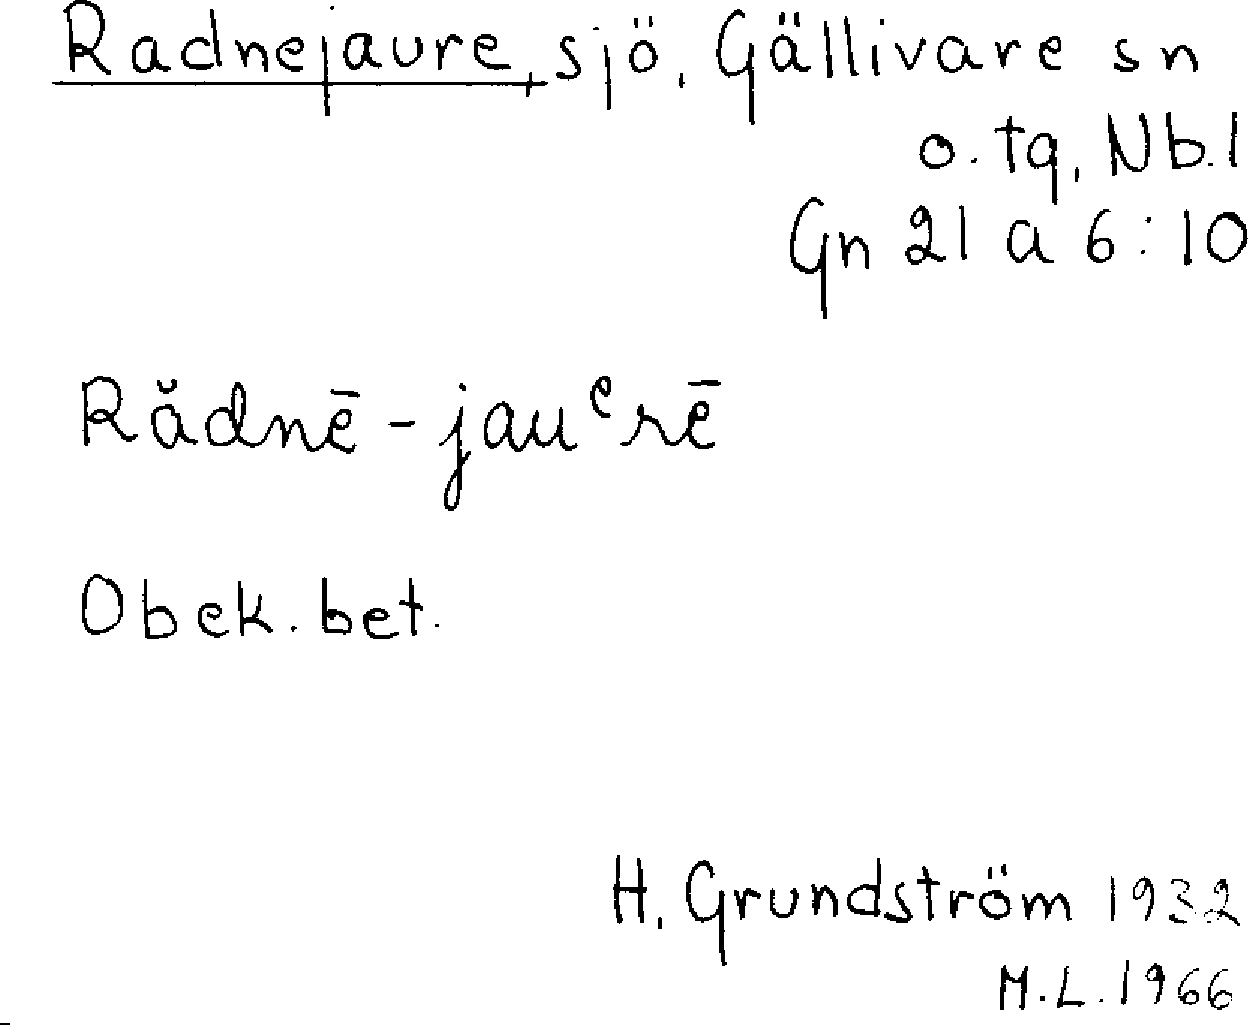 Radnejaure, sjö, Gällivare sn
o. tg, Nb.l
Gn 21 a 6:10
Rădnē-jauᵉrē
Obek. bet.
H. Grundström 1932
M.L. 1966